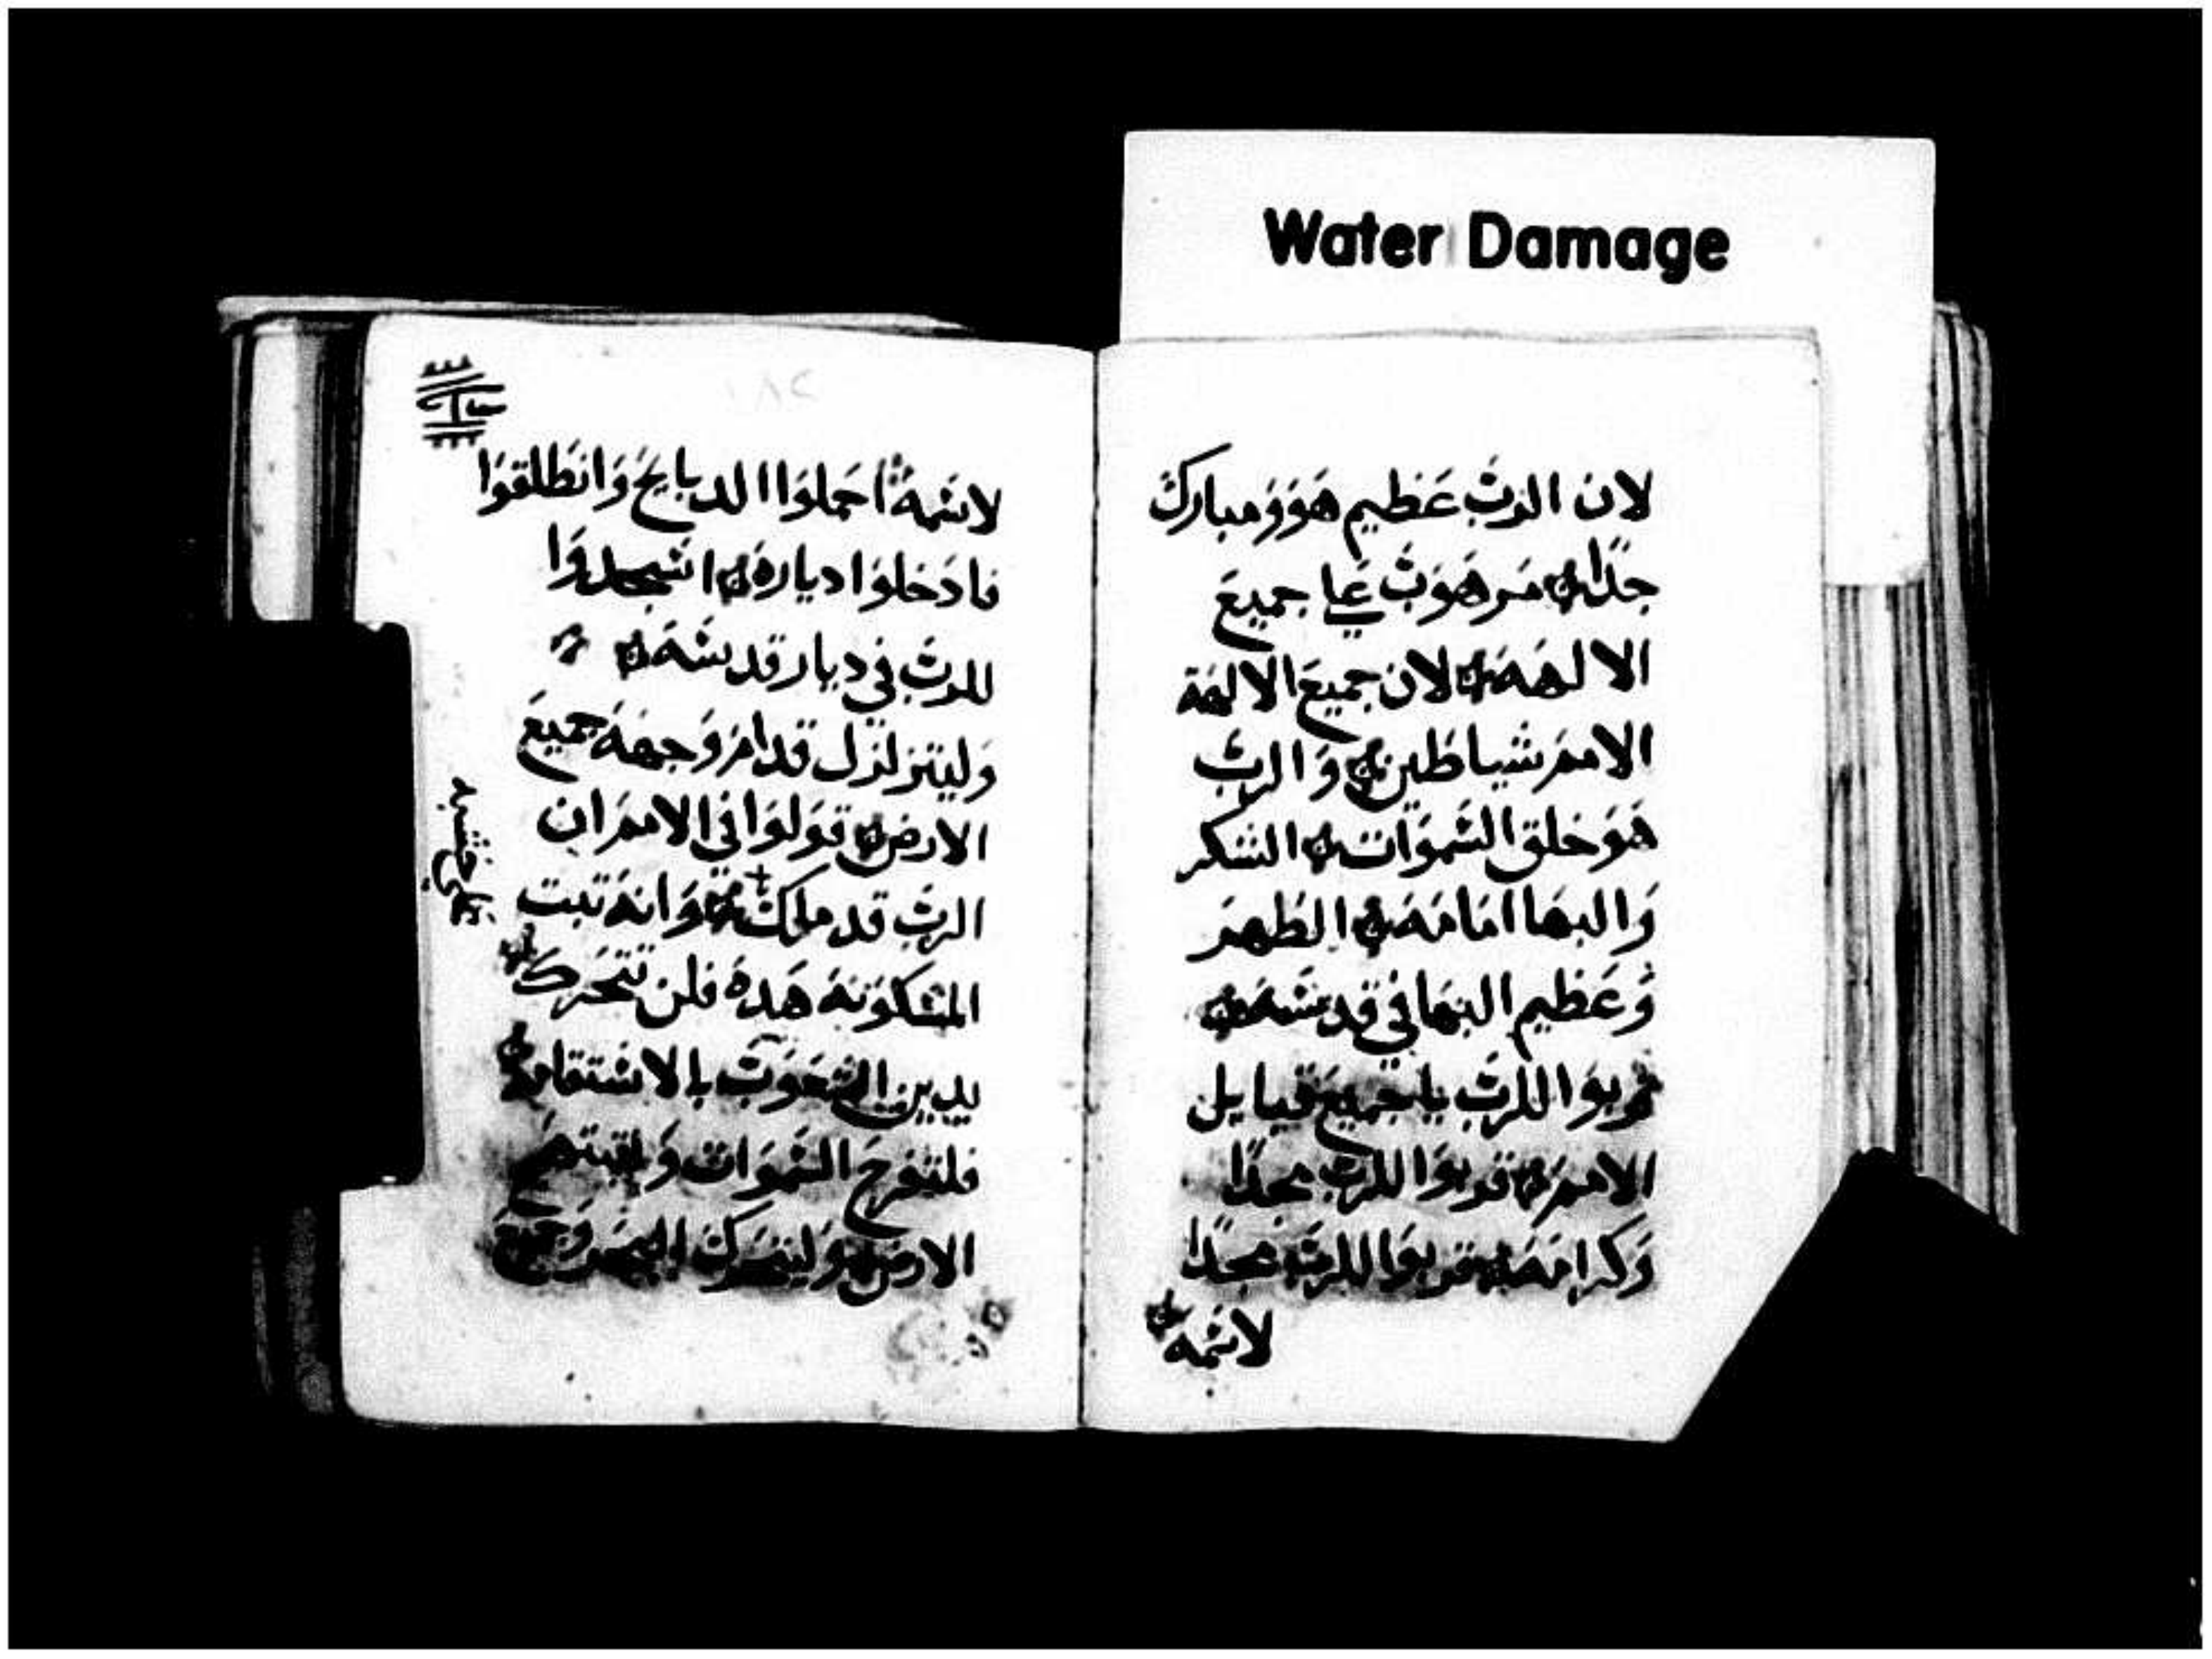 Water Damage
لان الرب عظيم هو ومبارك
جدا مرهوب علي جميع
الالهه لان جميع الالهة
الامم شياطين والرب
هو خلق السموات الشكر
والبها امامه الطهر
وعظيم البها في قدسه
قربوا للرب يا جميع قبايل
الامم قربوا للرب مجدا
وكرامه قربوا للرب مجدا
لاسمه
١٨٢
لاسمه احملوا الدبايح وانطلقوا
فادخلوا دياره اسجدوا
للرب في ديار قدسه
وليتزلزل قدام وجهه جميع
الارض قولوا في الامم ان
الرب قد ملك وانه تبت
المسكونه هده فلن تتحرك
يدين الشعوب بالاستقامه
فلتفرح السموات وتبتهج
الارض وليتحرك البحر وجميع
علي خشبه